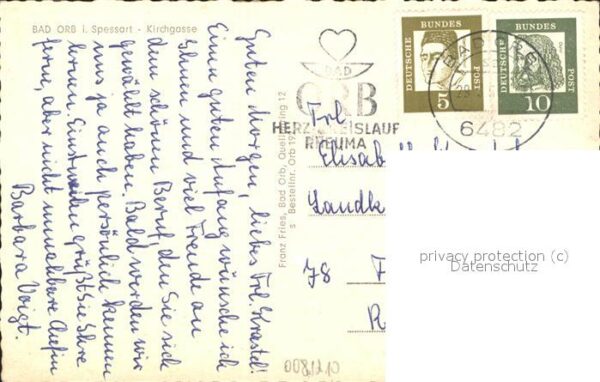 BAD ORB i. Spessart - Kirchgasse
Guten Morgen, liebes Frl. Krastel!
Einen guten Anfang wünsche ich
Ihnen und viel Freude an
dem schönen Beruf, den Sie sich
gewählt haben. Bald werden wir
uns ja auch persönlich kennen
lernen. Einstweilen grüßt Sie Ihre
ferne, aber nicht unnahbare Chefin
Barbara Voigt.
Franz Fries, Bad Orb, Quellenring 12
Bestellnr. Orb
BAD
ORB
HERZ KREISLAUF
RHEUMA
DEUTSCHE
BUNDES
POST
5
DEUTSCHE
BUNDES
POST
10
BAD ORB
6482
Frl.
Elisab
Landk
78 F
R
privacy protection (c)
Datenschutz